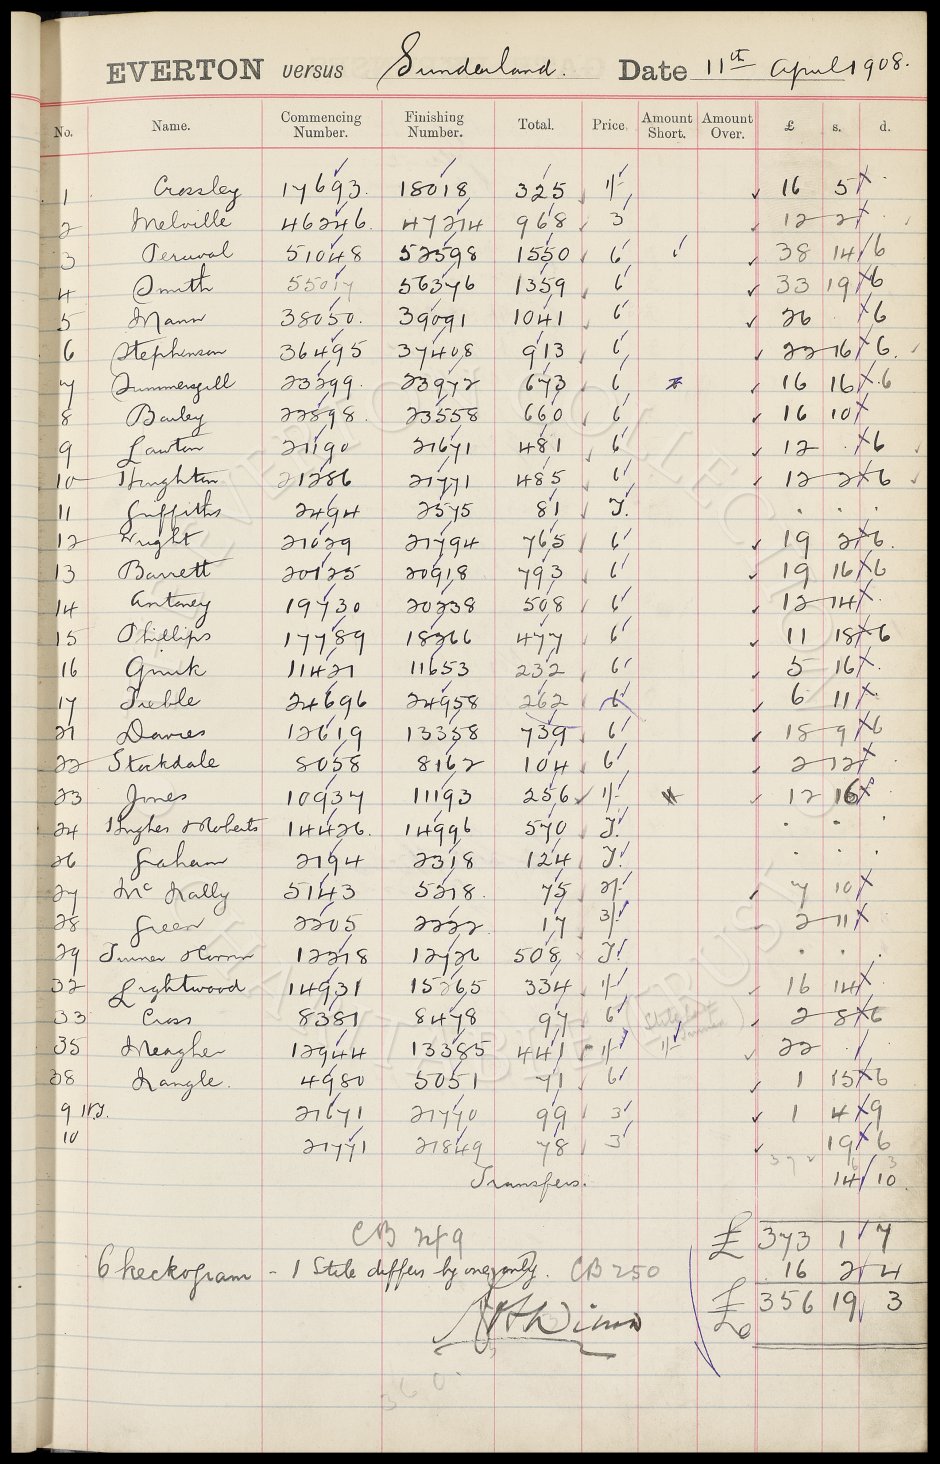 EVERTON versus Sunderland. Date 11th April 1908.
No. Name. Commencing Number. Finishing Number. Total. Price. Amount Short. Amount Over. £ s. d.
1 Crossley 17693. 18018 325 1/- 16 5
2 Melville 46246. 47214 968 3 12 2
3 Percival 51048 52598 1550 6 38 14 6
4 Smith 55017 56376 1359 6 33 19 6
5 Mann 38050. 39091 1041 6 26 6
6 Stephenson 36495 37408 913 6 22 16 6.
7 Summersgill 23299. 23972 673 6 16 16 6
8 Bailey 22898. 23558 660 6 16 10
9 Lawton 21190 21671 481 6 12 6
10 Houghton 21286 21771 485 6 12 2 6
11 Griffiths 2494 2575 81 J. . . .
12 Wright 21029 21794 765 6 19 2 6.
13 Barrett 20125 20918 793 6 19 16 6
14 Antoney 19730 20238 508 6 12 14
15 Phillips 17789 18266 477 6 11 18 6
16 11421 11653 232 6 5 16
17 Treble 24696 24958 262 6 6 11
21 Davies 12619 13358 739 6 18 9 6
22 Stockdale 8058 8162 104 6 2 12
23 Jones 10937 11193 256 1/- 12 16
24 Hughes & Roberts 14426. 14996 570 J. . . .
26 Graham 2194 2318 124 J. . . .
27 Mc Nally 5143 5218. 75 2/- 7 10
28 Green 2205 2222. 17 3/- 2 11
29 Turner 12218 12726 508 J. . . .
32 Lightwood 14931 15265 334 1/- 16 14
33 Cross 8381 8478 97 6 2 8 6
35 Meagher 12944 13385 441 1/- 1/- 22
38 Nangle. 4980 5051 71 6 1 15 6
9 21671 21770 99 3 1 4 9
10 21771 21849 78 3 19 6
Transfers. 14 10
CB 249 £ 373 1 7
Checkogram - 1 Stile differs by one only. CB 250 16 2 4
£ 356 19 3
360.
EVERTON COLLECTION
CHARITABLE TRUST